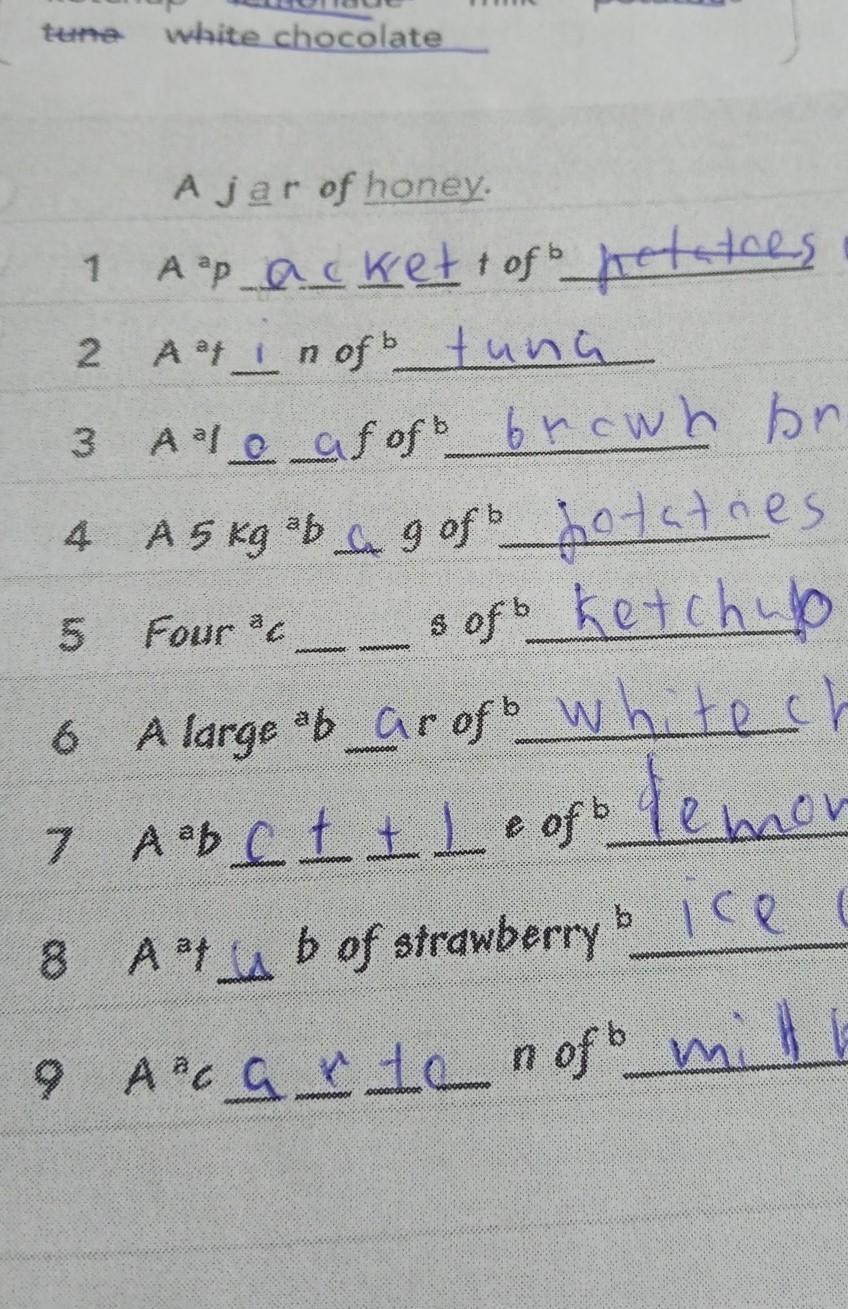 tuna white chocolate
A jar of honey.
1 A ap acket t of b potatoes
2 A at i n of b tuna
3 A al o a f of b brown br
4 A 5 kg ab a g of b potatoes
5 Four ac __ __ s of b ketchup
6 A large ab a r of b white ch
7 A ab o t t l e of b lemon
8 A at u b of strawberry b ice c
9 A ac a r t o n of b milk